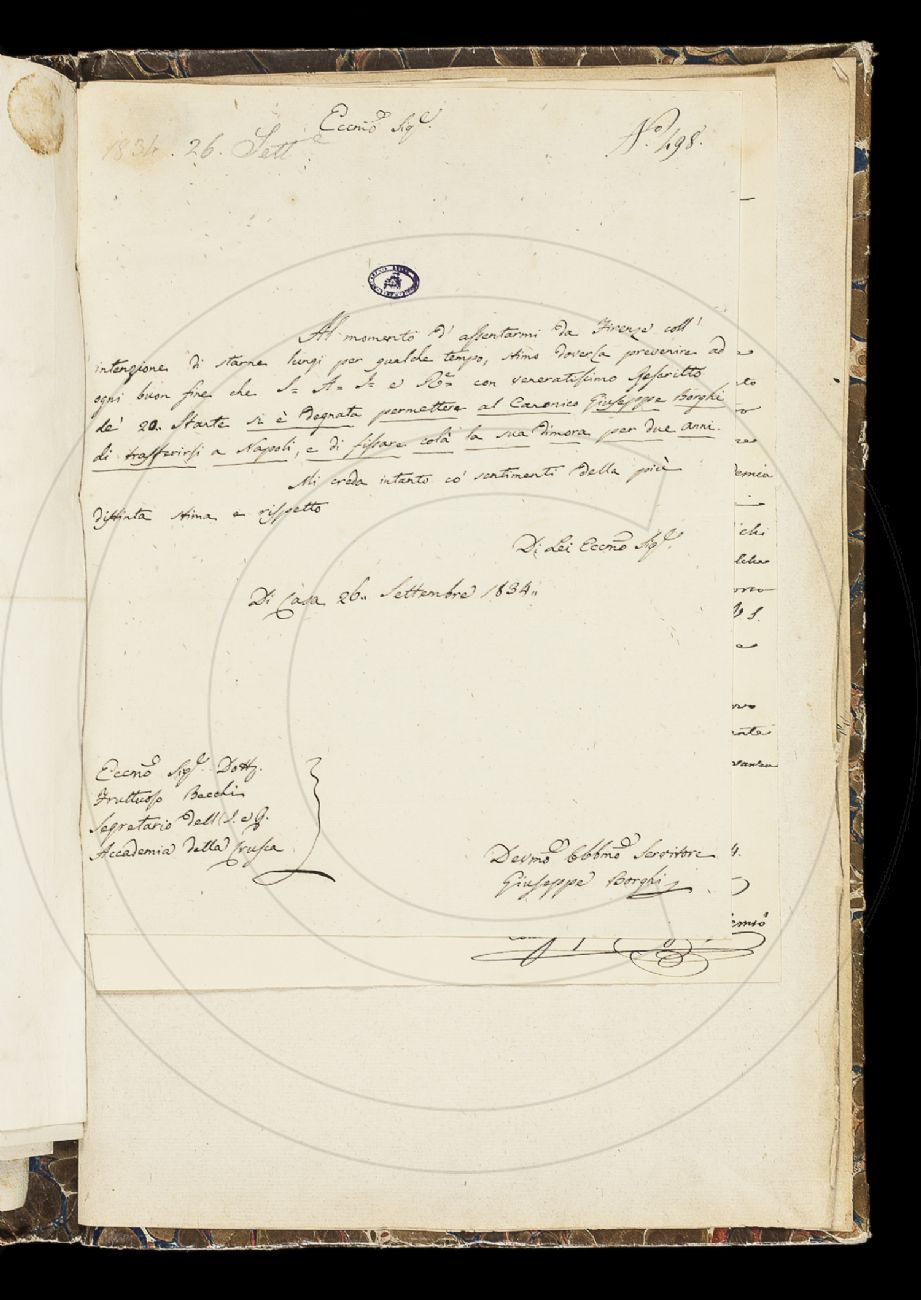 Eccmo Sigre.
1834. 26. Sette
No. 498.
Al momento d'assentarmi da Firenze coll'
intenzione di starne lungi per qualche tempo, stimo doverla prevenire ad
ogni buon fine che S= A= I= e R= con veneratissimo Rescritto
de' 20. Stante si è degnata permettere al Canonico Giuseppe Borghi
di trasferirsi a Napoli, e di fissare colà la sua dimora per due anni.
Mi creda intanto co' sentimenti della più
distinta stima e rispetto
Di Lei Eccmo Sigre.
Di Casa 26. Settembre 1834..
Eccmo Sigre. Dott.
Fruttuoso Becchi
Segretario dell'I. e R.
Accademia della Crusca
Devmo Obbmo Servitore
Giuseppe Borghi